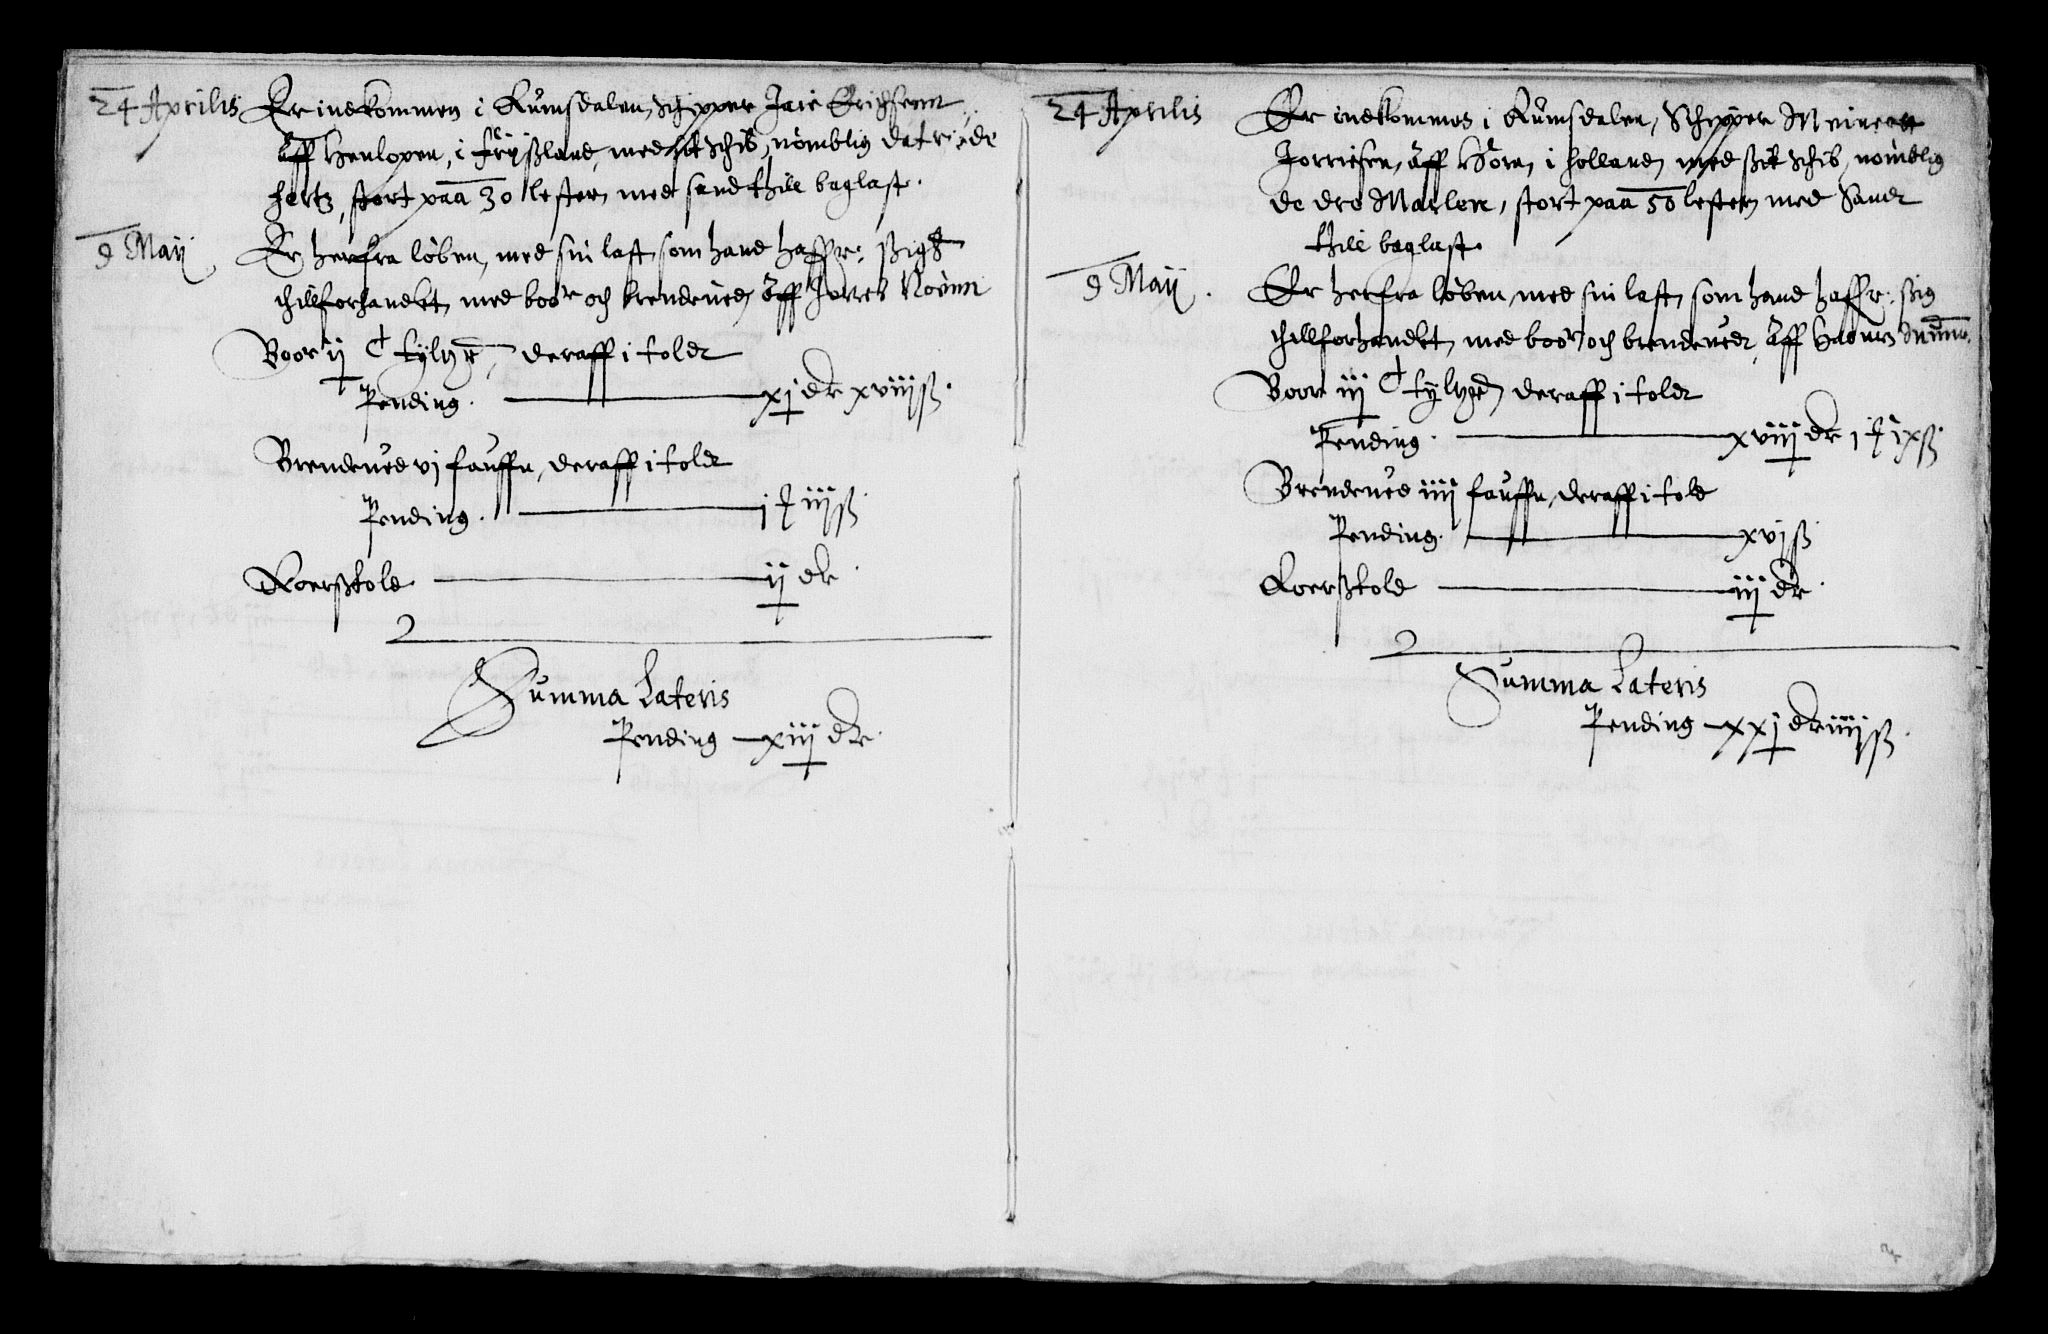 24 Aprilis Er indkommen i Rumsdalen, Schipper Jaie Erichsenn
aff Henlopen, i Frÿßland, med sit Schib, nömblig
hertz, stort paa 30 lester, med sand thill baglast.
9 Maÿ Er herfra löben, med sin last som hand haffr: ßigh
thillforhandlt, med boor och brendeued aff
Boor ij C tÿlther, deraff i told
Pending. xj dr xviij ß.
Brendeued vj fauffn, deraff i told
Pending. j ₰ iij ß
Roerßtold ij dr
Summa Lateris
Pending xiij dr.
24 Aprilis Er indkommen i Rumsdalen, Schipper Meinert
Jorriesen, aff Hörn, i Holland, med ßit Schib, nömblig
de dre Marlen, stort paa 50 lester med Sand
thill baglast.
9 Maÿ. Er herfra löben, med sin last som hand haffr: ßig
thillforhandlt, med boor och brendeued, aff
Boor iij C tÿlther, deraff i told
Pending. xviij dr j ₰ ixß.
Brendeued iiij fauffn, deraff i told
Pending. xvj ß
Roerßtold iij dr.
Summa Lateris
Pending xxj dr iiij ß.